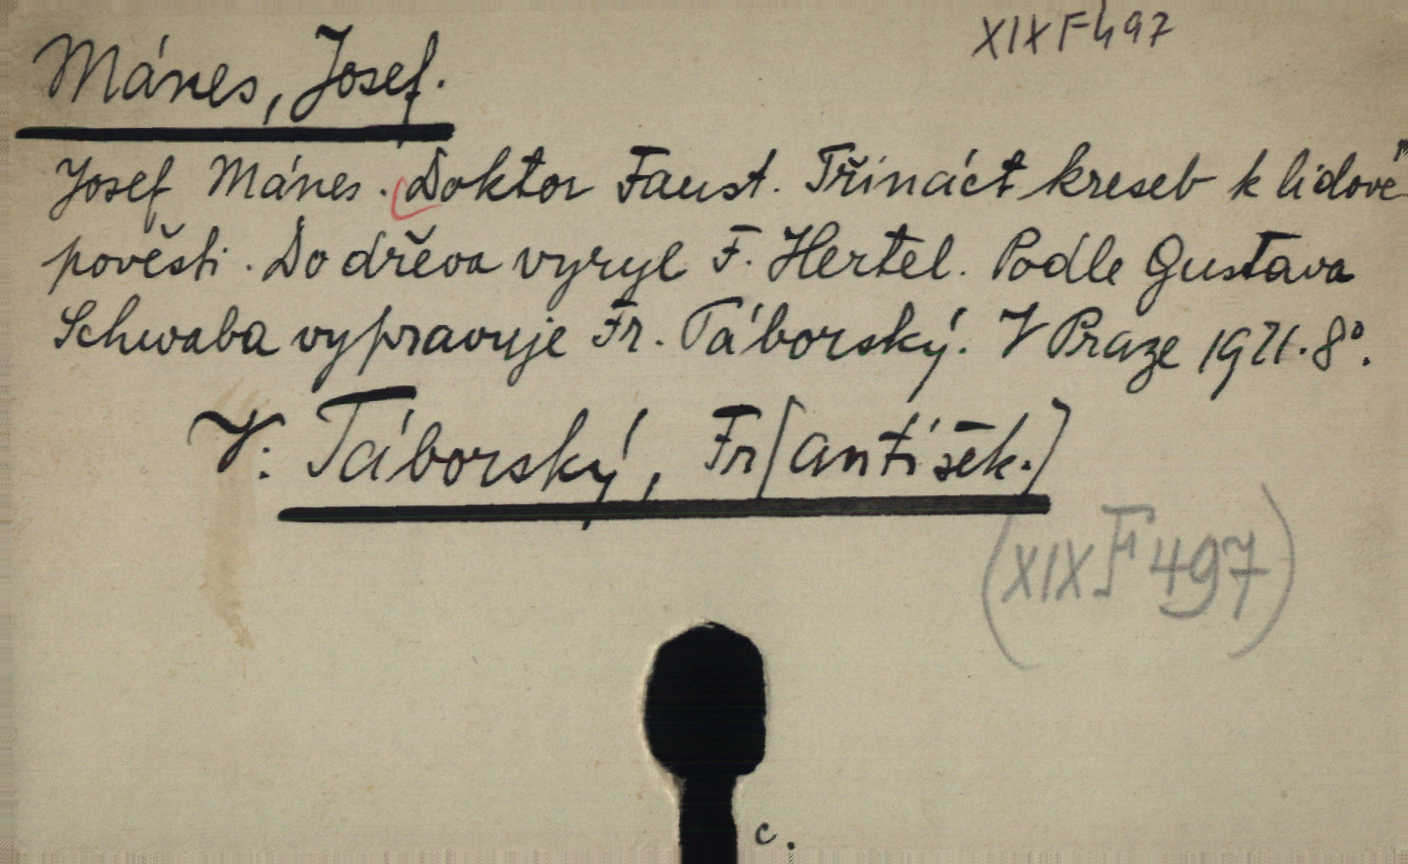 XIX F 497
Mánes, Josef.
Josef Mánes. Doktor Faust. Třináct kreseb k lidové
pověsti. Do dřeva vyryl F. Hertel. Podle Gustava
Schwaba vypravuje Fr. Táborský. V Praze 1921. 8°.
V: Táborský, Fr[antišek.]
(XIX F 497)
c.